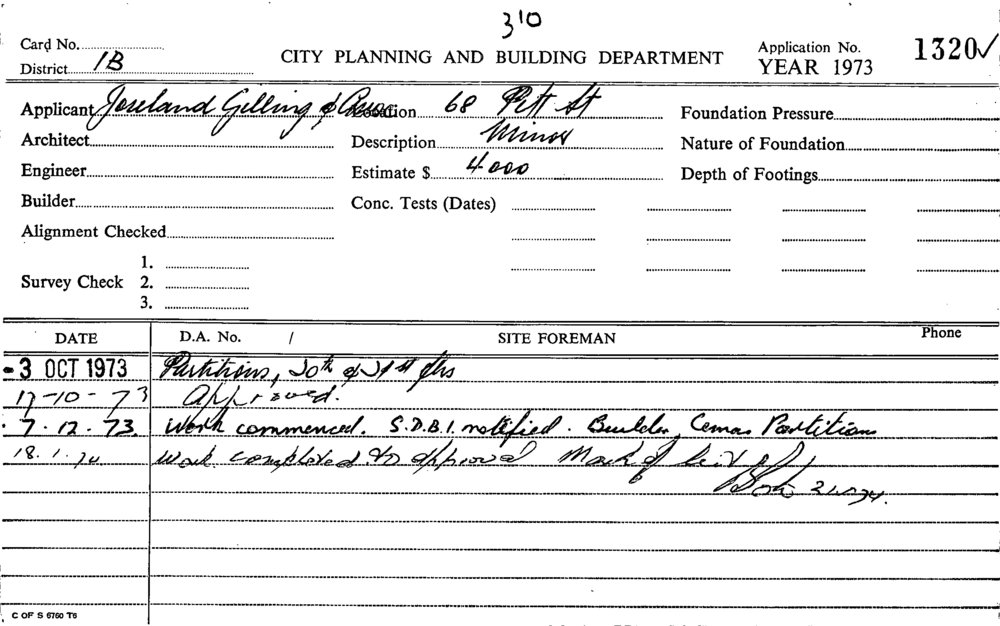 310
Card No.
District 1B
CITY PLANNING AND BUILDING DEPARTMENT
Application No. 1320 ✓
YEAR 1973
Applicant Joseland Gilling & Assoc.
Location 68 Pitt St
Foundation Pressure
Architect
Description Minor
Nature of Foundation
Engineer
Estimate $ 4000
Depth of Footings
Builder
Conc. Tests (Dates)
Alignment Checked
Survey Check
1.
2.
3.
DATE D.A. No. / SITE FOREMAN Phone
-3 OCT 1973 Partitions, 20th & 21st flrs
17-10-73 Approved.
7.12.73. Work commenced. S.D.B.I. notified. Builder Partitions
18.1.74 Work completed to approval Mark off
C OF S 6760 T6